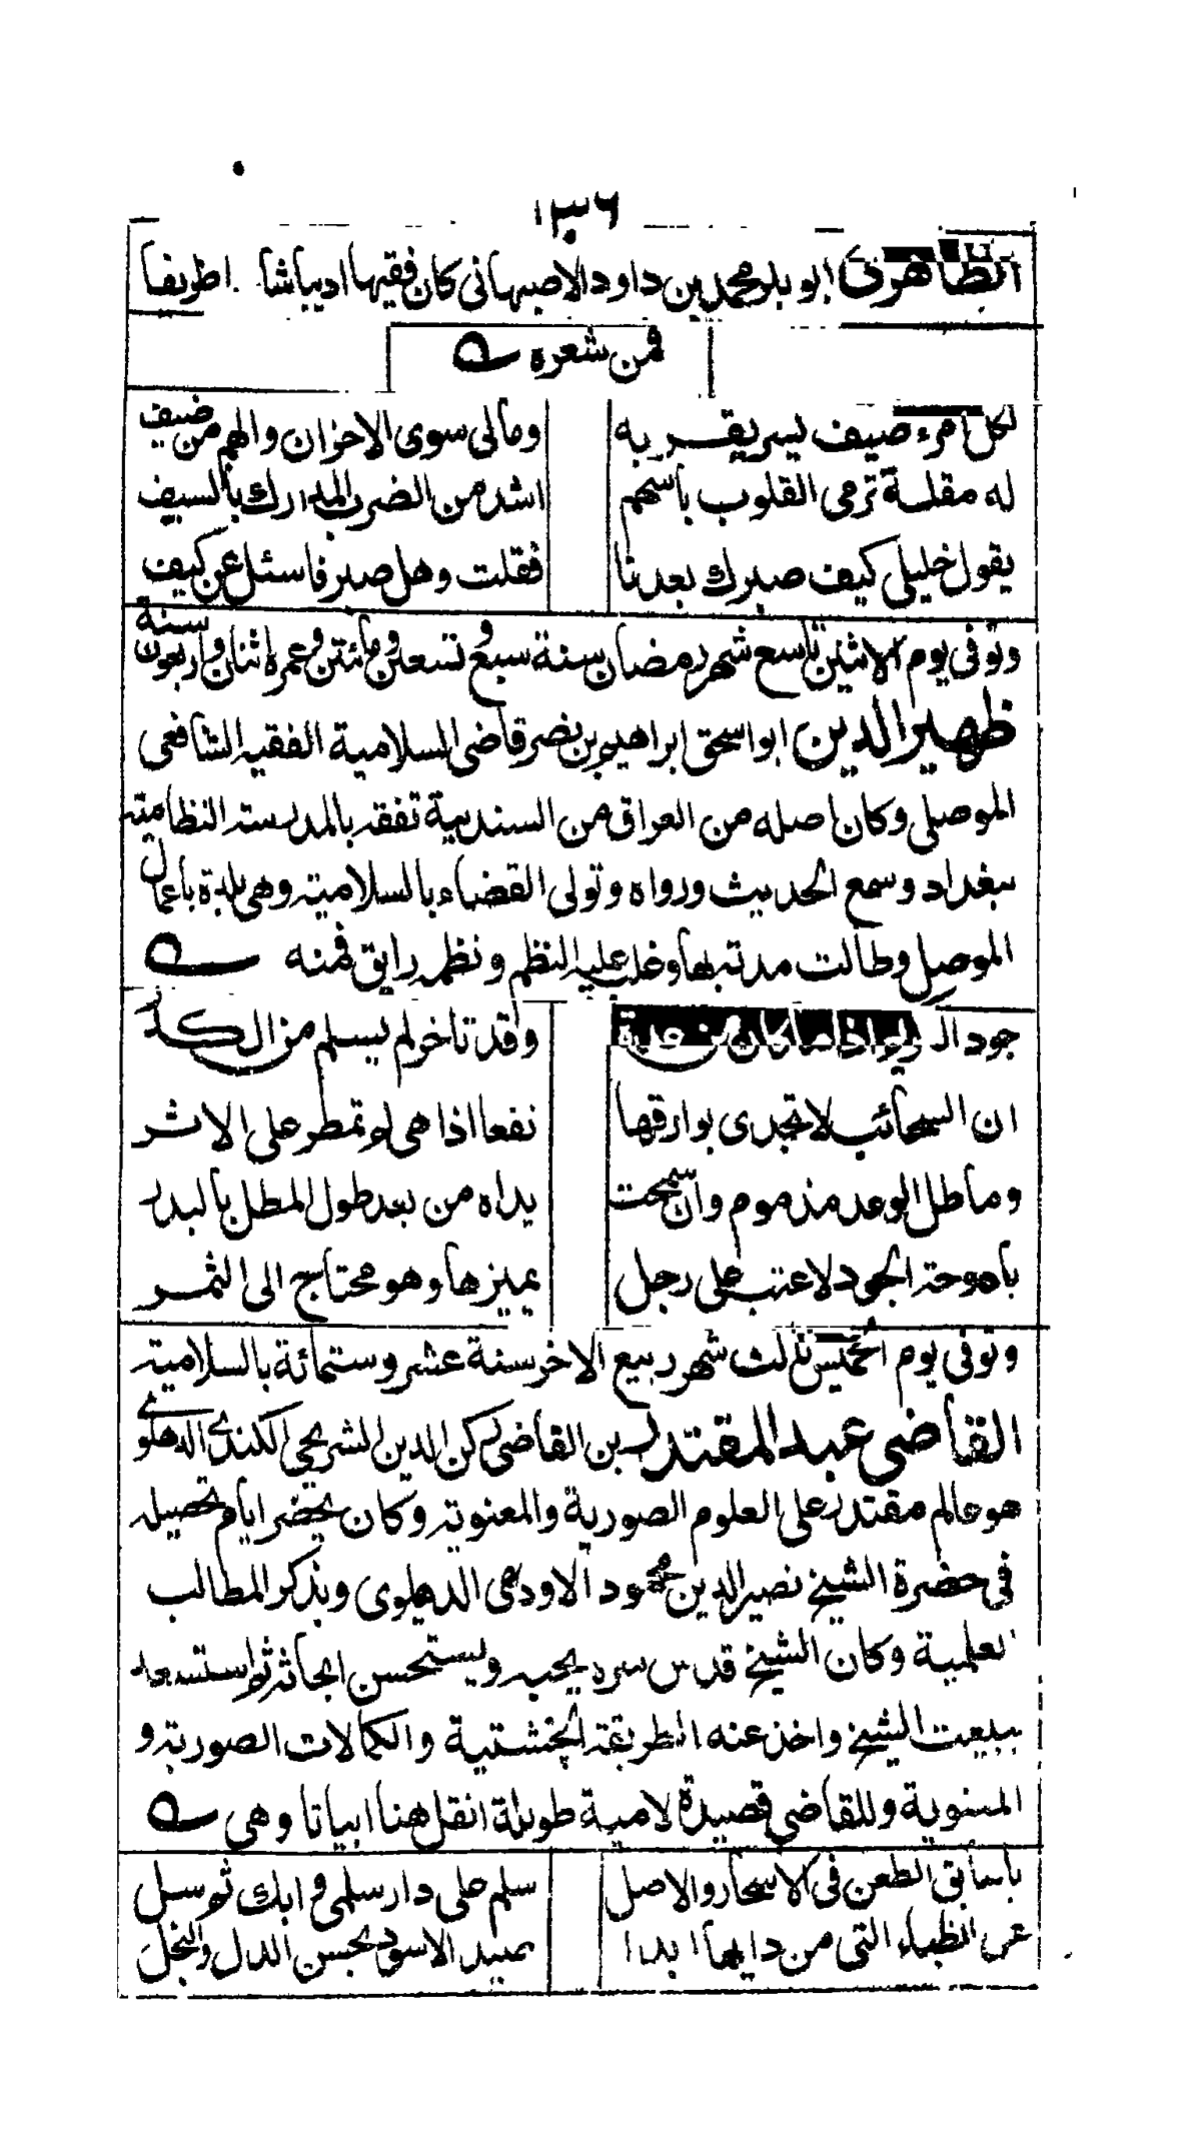 ١٣٦
الظاهرى ابو بكر محمد بن داود الاصبهانى كان فقيها اديبا شا اظريفا
فمن شعره
لكل امرء ضيف يسر بقربه ومالى سوى الاحزان والهم من ضيف
له مقلة ترمى القلوب باسهم اشد من الضرب المدارك بالسيف
يقول خليلى كيف صبرك بعدنا فقلت وهل صبر فاسئل عن كيف
وتوفى يوم الاثنين تاسع شهر رمضان سنة سبع وتسعين ومائتين وعمره اثنان واربعون سنة
ظهير الدين ابو اسحق ابراهيم بن نصر قاضى السلامية الفقيه الشافعى
الموصلى وكان اصله من العراق من السندية تفقه بالمدرسته النظامية
ببغداد وسمع الحديث ورواه وتولى القضاء بالسلامية وهى بلدة باعمال
الموصل وطالت مدته بها وغلب عليه النظم ونظمه رايق فمنه
جود ال وقد تاخر لم يسلم من الكدر
ان السحائب لا تجدى بوارقها نفعا اذا هى لم تمطر على الاثر
وماطل الوعد مذموم وان سمحت يداه من بعد طول المطل بالبدر
يا دوحة الجود لا عتب على رجل يميزها وهو محتاج الى الثمر
وتوفى يوم الخميس ثالث شهر ربيع الاخر سنة عشر وستمائة بالسلامية
القاضى عبد المقتدر بن القاضى ركن الدين الشريحى الكندى الدهلوى
هو عالم مقتدر على العلوم الصورية والمعنوية وكان يحضر ايام تحصيله
فى حضرة الشيخ نصير الدين محمود الاودهى الدهلوى ويذكر المطالب
العلمية وكان الشيخ قدس سره يحبه ويستحسن ابحاثه ثم استسعد
ببيعت الشيخ واخذ عنه الطريقة الچشتية والكمالات الصورية و
المعنوية وللقاضى قصيدة لامية طويلة انقل هنا ابياتا وهى
يا سائق الظعن فى الاسحار والاصل سلم على دار سلمى وابك ثم سل
عن الظباء التى من دابها ابدا صيد الاسود بحسن الدل والنجل